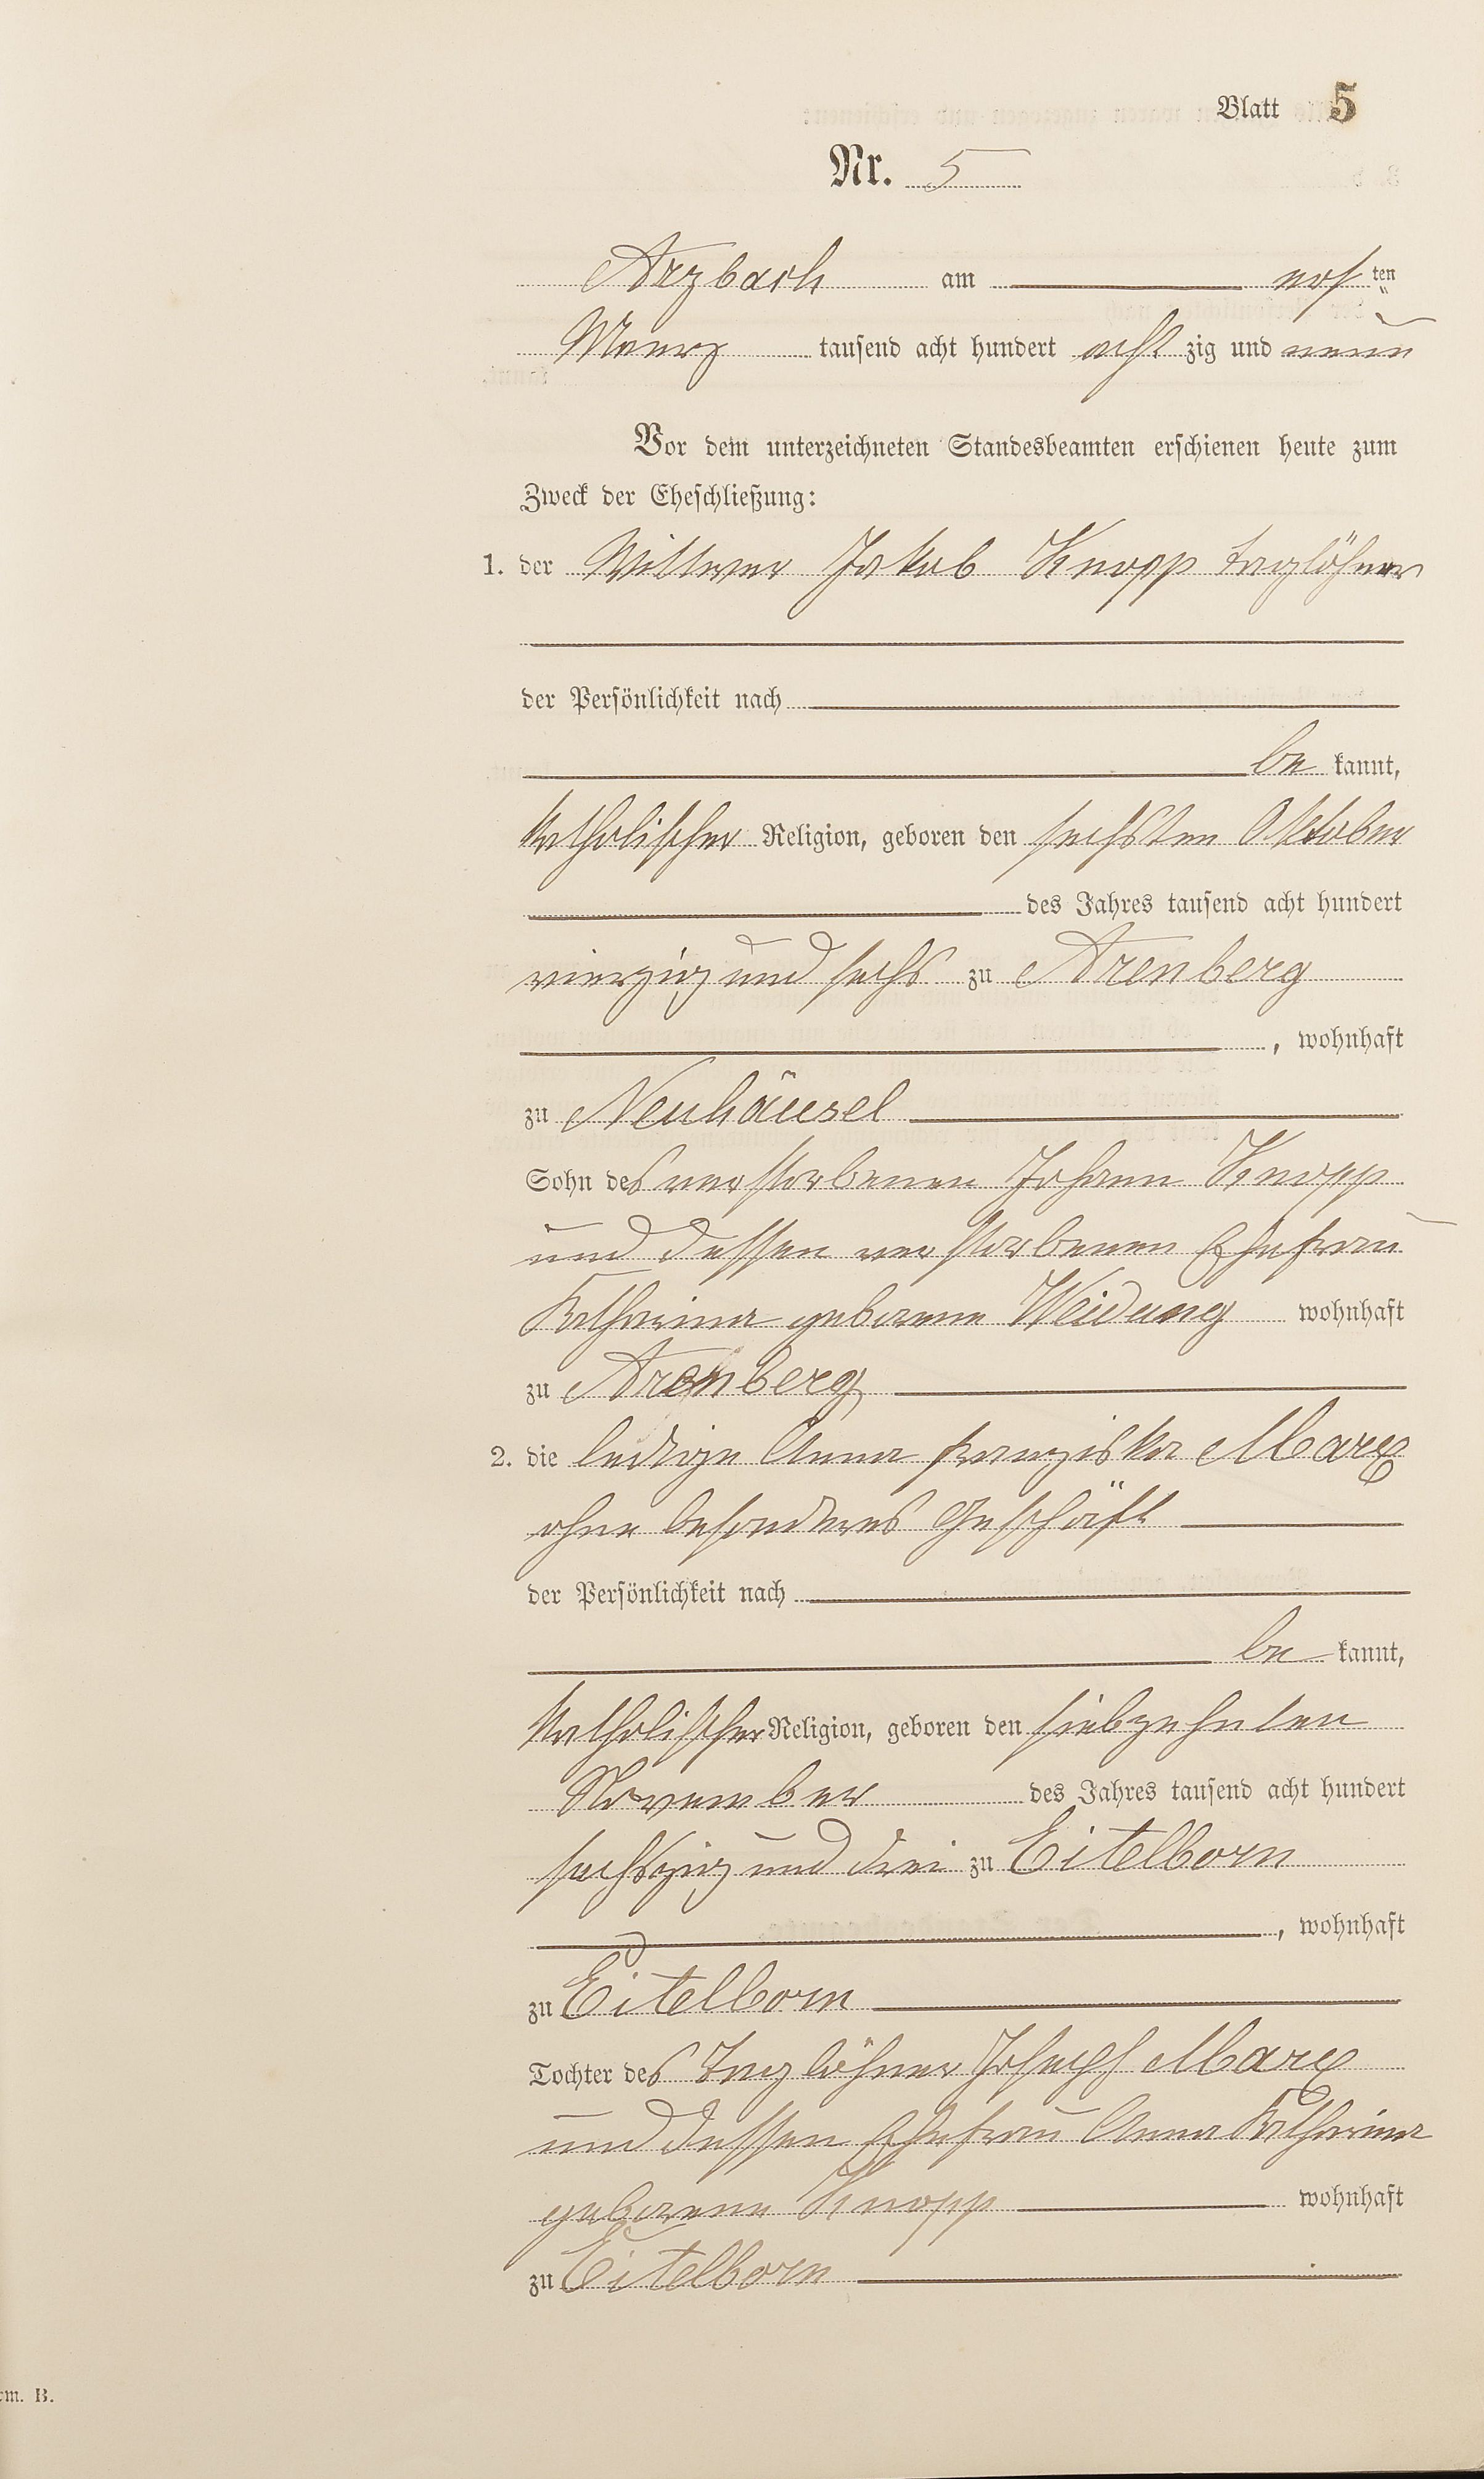 Blatt 5
Nr. 5
Arzbach am ten
Maerz tausend acht hundert acht zig und neun
Vor dem unterzeichneten Standesbeamten erschienen heute zum
Zweck der Eheschließung:
1. der Wittwer Jakob Knopp Taglöhner
der Persönlichkeit nach
be kannt,
katholischer Religion, geboren den sechsten Oktober
des Jahres tausend acht hundert
vierzig und sechs zu Arenberg
, wohnhaft
zu Neuhäusel
Sohn des verstorbenen Johann Knopp
und dessen verstorbenen Ehefrau
Katharina geborene Weidung wohnhaft
zu Arenberg
2. die ledige Anna Franziska Marx
ohne besonderes Geschäft
der Persönlichkeit nach
be kannt,
katholischer Religion, geboren den siebzehnten
November des Jahres tausend acht hundert
sechszig und drei zu Eitelborn
, wohnhaft
zu Eitelborn
Tochter des Taglöhner Joseph Marx
und dessen Ehefrau Anna Katharina
geborene Knopp wohnhaft
zu Eitelborn
rm. B.